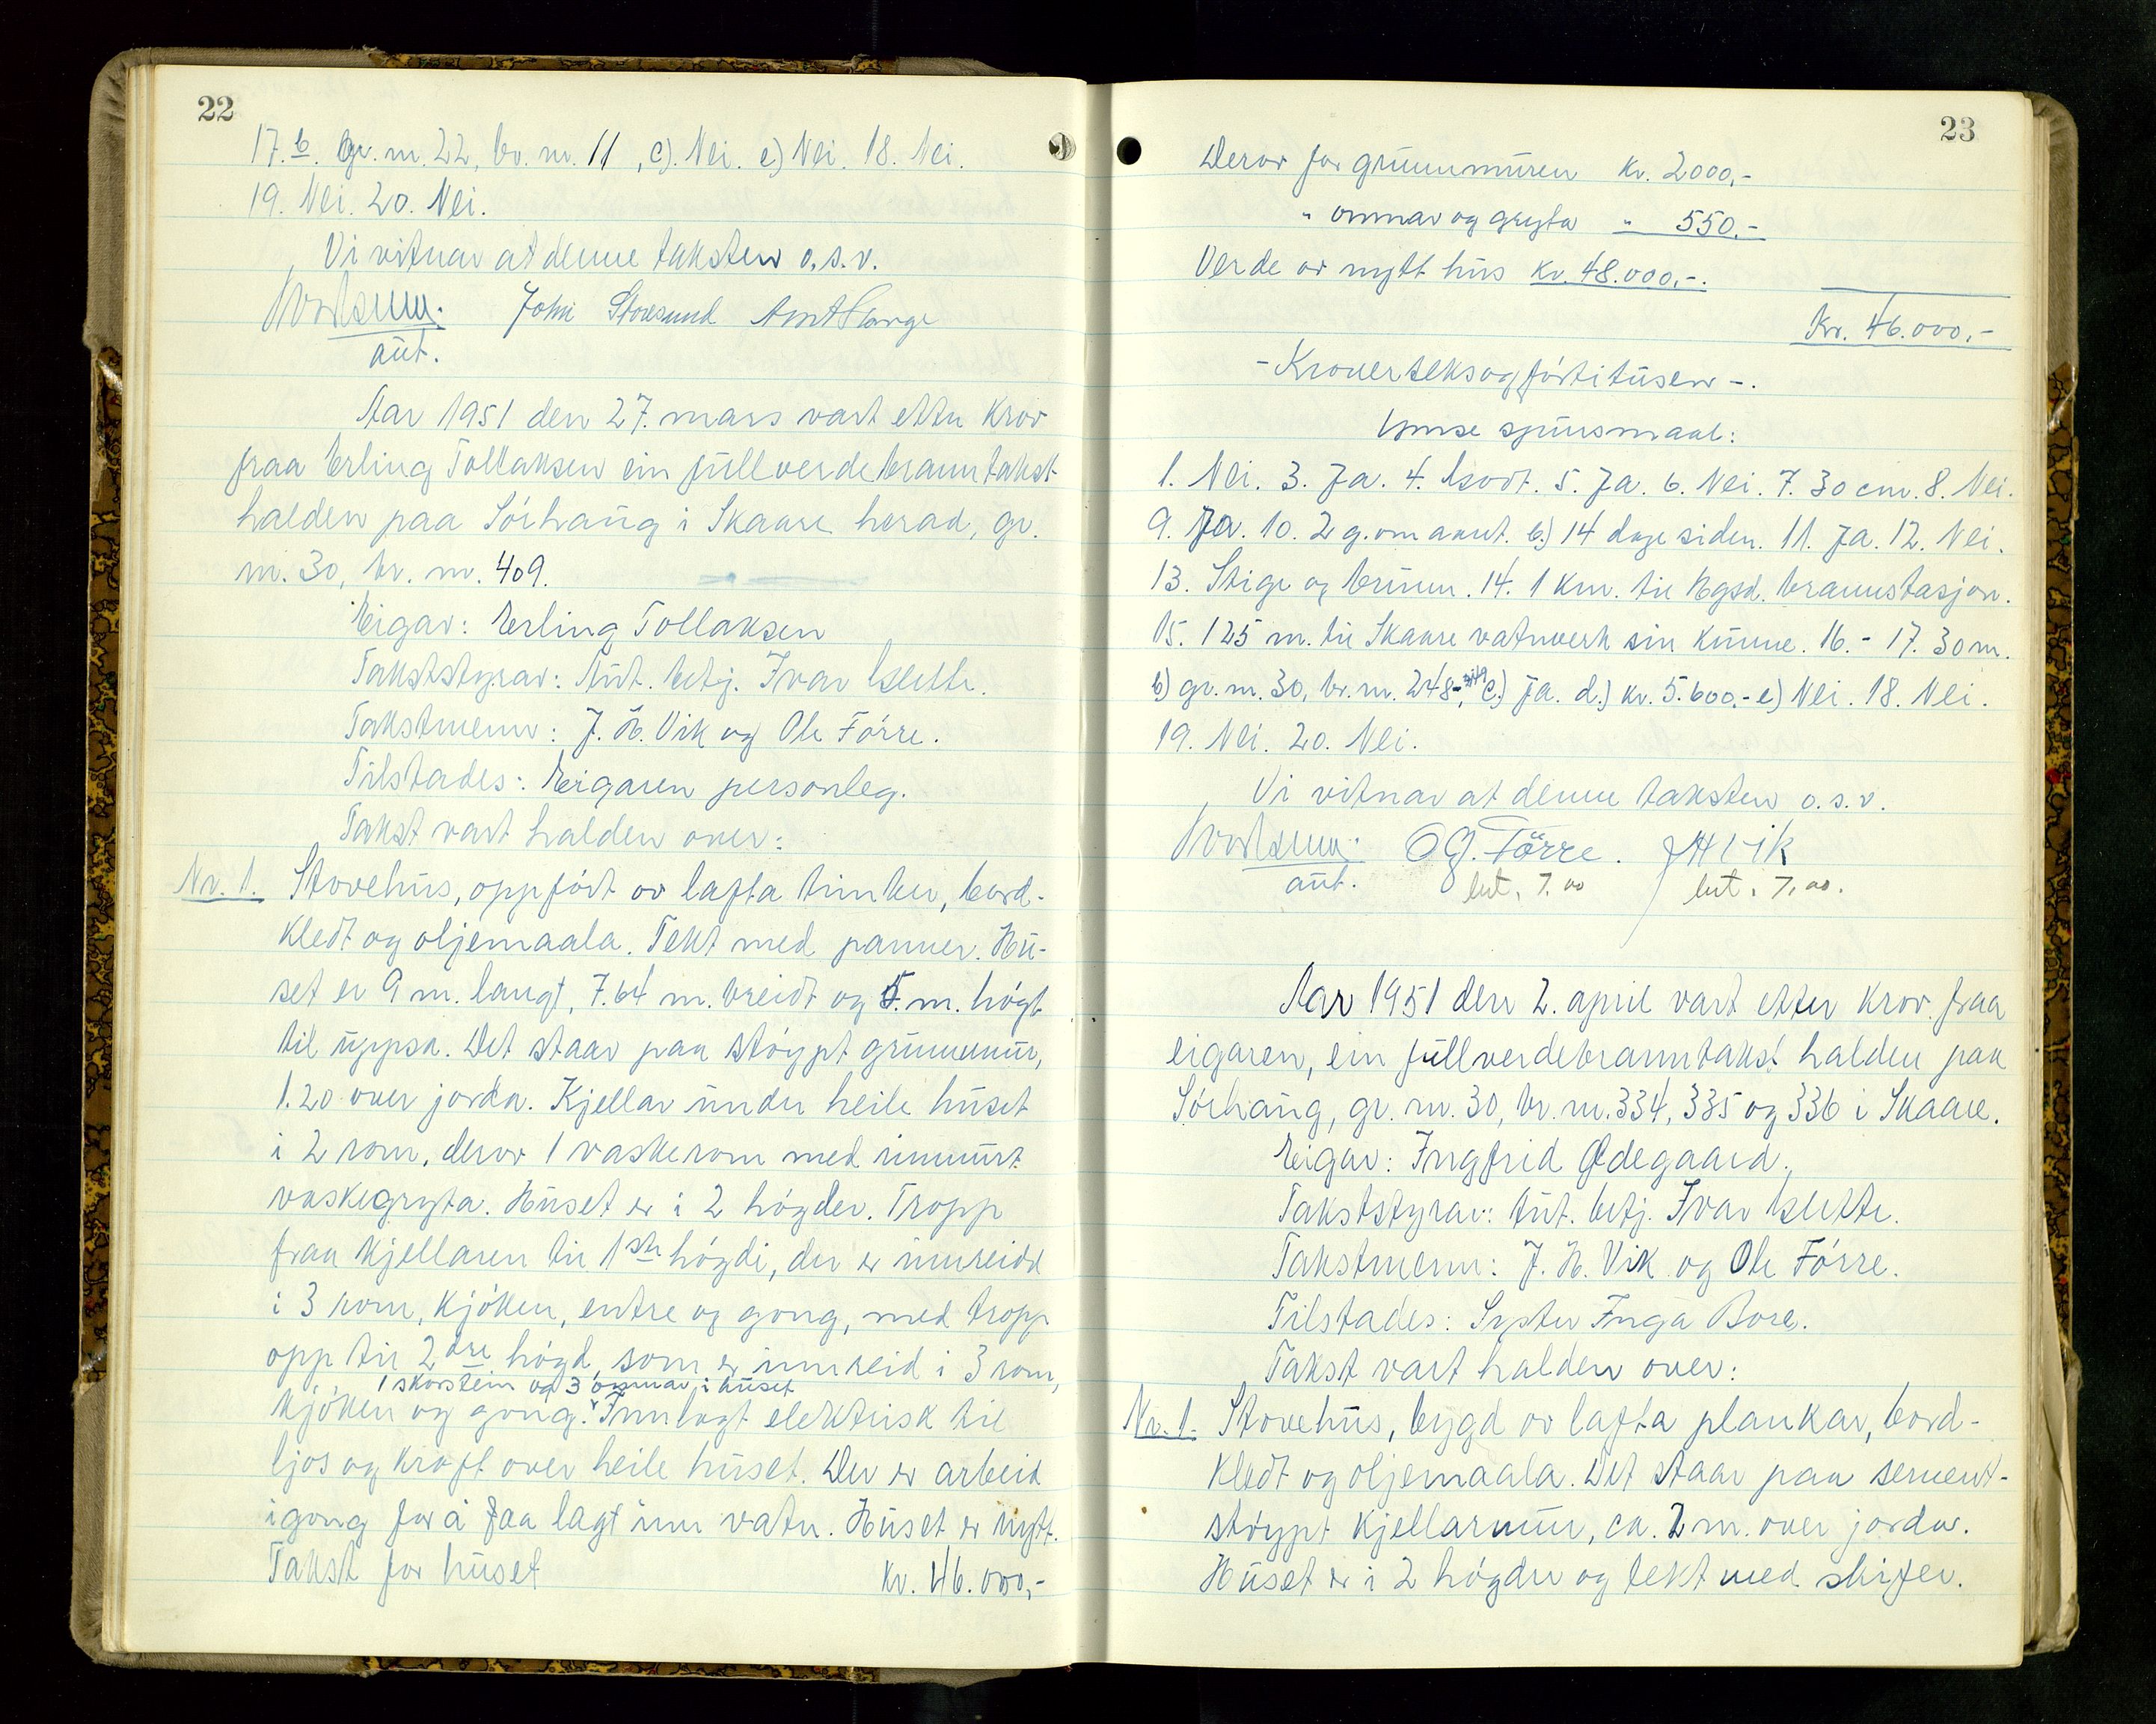 22
17. b. gr. nr. 22, br. nr. 11, c). Nei. e) Nei. 18. Nei.
19. Nei. 20. Nei.
Vi vitnar at denne taksten o.s.v.
John Storesund
aut.
Aar 1951 den 27. mars vart etter krov
fraa Erling Tollaksen ein fullverdebranntakst
halden paa Sørhaug i Skaare herad, gr.
nr. 30, br. nr. 409.
Eigar: Erling Tollaksen
Takststyrar: Aut. betj. Ivar Klette.
Takstmenn: J. H. Vik og Ole Førre.
Tilstades: Eigaren personleg.
Takst vart halden over:
Nr. 1. Stovehus, oppført av lafta timber, bord-
kledt og oljemaala. Tekt med panner. Hu-
set er 9 m. langt, 7.64 m. breidt og 5. m. høgt
til uppsa. Det staar paa støypt grunnmur,
1.20 over jorda. Kjellar under heile huset
i 2 rom, derav 1 vaskerom med innmurt
vaskegryta. Huset er i 2 høgder. Tropp
fraa kjellaren til 1ste høgdi, der er innreidd
i 3 rom, kjøken, entre og gong, med tropp
opp til 2dre høgd, som er innreid i 3 rom,
1 skorstein og 3 omnar i huset
kjøken og gong. Innlagt elektrisk til
ljos og kraft over heile huset. Der er arbeid
igong for å faa lagt inn vatn. Huset er nytt.
Takst for huset kr. 46.000,-
23
Derav for grunnmuren kr. 2000,-
" omnar og gryta " 550.-
Verde av nytt hus kr. 48.000,-.
Kr. 46.000,-
- Kroner seksogførtitusen -.
Ymse spursmaal:
1. Nei. 3. Ja. 4. Godt. 5. Ja. 6. Nei. 7. 30 cm. 8. Nei.
9. Ja. 10. 2 g. om aaret. b.) 14 dage siden. 11. Ja. 12. Nei.
13. Stige og brunn. 14. 1 km. til Hgsd. brannstasjon.
15. 125 m. til Skaare vatnverk sin kumme. 16. - 17. 30 m.
b) gr. nr. 30, br. nr. 248-, c.) Ja. d.) kr. 5.600.- e) Nei. 18. Nei.
19. Nei. 20. Nei.
Vi vitnar at denne taksten o.s.v.
O G. Førre. J H Vik
aut. bet. 7.00 bet. 7.00.
Aar 1951 den 2. april vart etter krov fraa
eigaren, ein fullverdebranntakst halden paa
Sørhaug, gr. nr. 30, br. nr. 334, 335 og 336 i Skaare.
Eigar: Ingfrid Ødegaard.
Takststyrar: Aut. betj. Ivar Klette.
Takstmenn: J. H. Vik og Ole Førre.
Tilstades: Syster Inga Bore.
Takst vart halden over:
Nr. 1. Stovehus, bygd av lafta plankar, bord-
kledt og oljemaala. Det staar paa sement-
støypt kjellarmur, ca. 2 m. over jorda.
Huset er i 2 høgder og tekt med skifer.